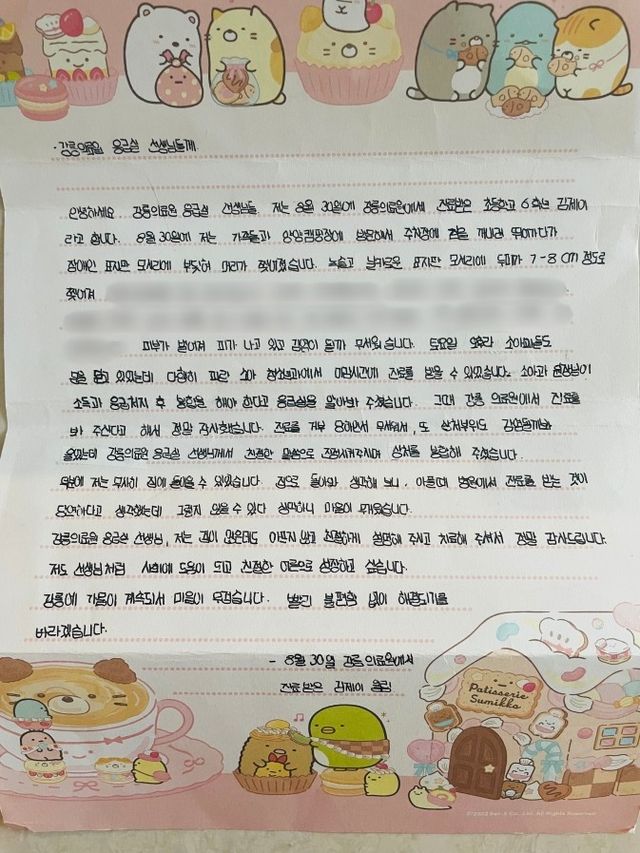 · 강릉의료원 응급실 선생님들께
안녕하세요. 강릉의료원 응급실 선생님들. 저는 8월 30일에 강릉의료원에서 진료받은 초등학교 6학년 김제이
라고 합니다. 8월 30일에 저는 가족들과 양양캠핑장에 방문해서 주차장에 짐을 꺼내러 뛰어가다가
장애인 표지판 모서리에 부딪혀 머리가 찢어졌습니다. 녹슬고 날카로운 표지판 모서리에 두피가 7-8cm 정도로
찢어져
피부가 벌어져 피가 나고 있고 감염이 될까 무서웠습니다. 토요일 오후라 소아과들도
문을 닫고 있었는데 다행히 파란 소아 청소년과에서 마감시간에 진료를 받을 수 있었습니다. 소아과 원장님이
소독과 응급처치 후 봉합을 해야 한다고 응급실을 알아봐 주셨습니다. 그때 강릉 의료원에서 진료를
봐 주신다고 해서 정말 감사했습니다. 진료를 거부 당하면서 무서워서, 또 상처부위도 감염될까봐
울었는데 강릉의료원 응급실 선생님께서 친절한 말씀으로 진정시켜주시며 상처를 봉합해 주셨습니다.
덕분에 저는 무사히 집에 올 수 있었습니다. 집으로 돌아와 생각해 보니, 아플때 병원에서 진료를 받는 것이
당연하다고 생각했는데 그렇지 않을 수 있다 생각하니 마음이 무거웠습니다.
강릉의료원 응급실 선생님, 저는 같이 않은데도 아프지 않고 친절하게 설명해 주시고 치료해 주셔서 정말 감사드립니다.
저도 선생님처럼 사회에 도움이 되고 친절한 어른으로 성장하고 싶습니다.
강릉에 가뭄이 계속되서 마음이 무겁습니다. 빨리 불편한 점이 해결되기를
바라겠습니다.
- 8월 30일 강릉의료원에서
진료 받은 김제이 올림
Patisserie
Sumikko